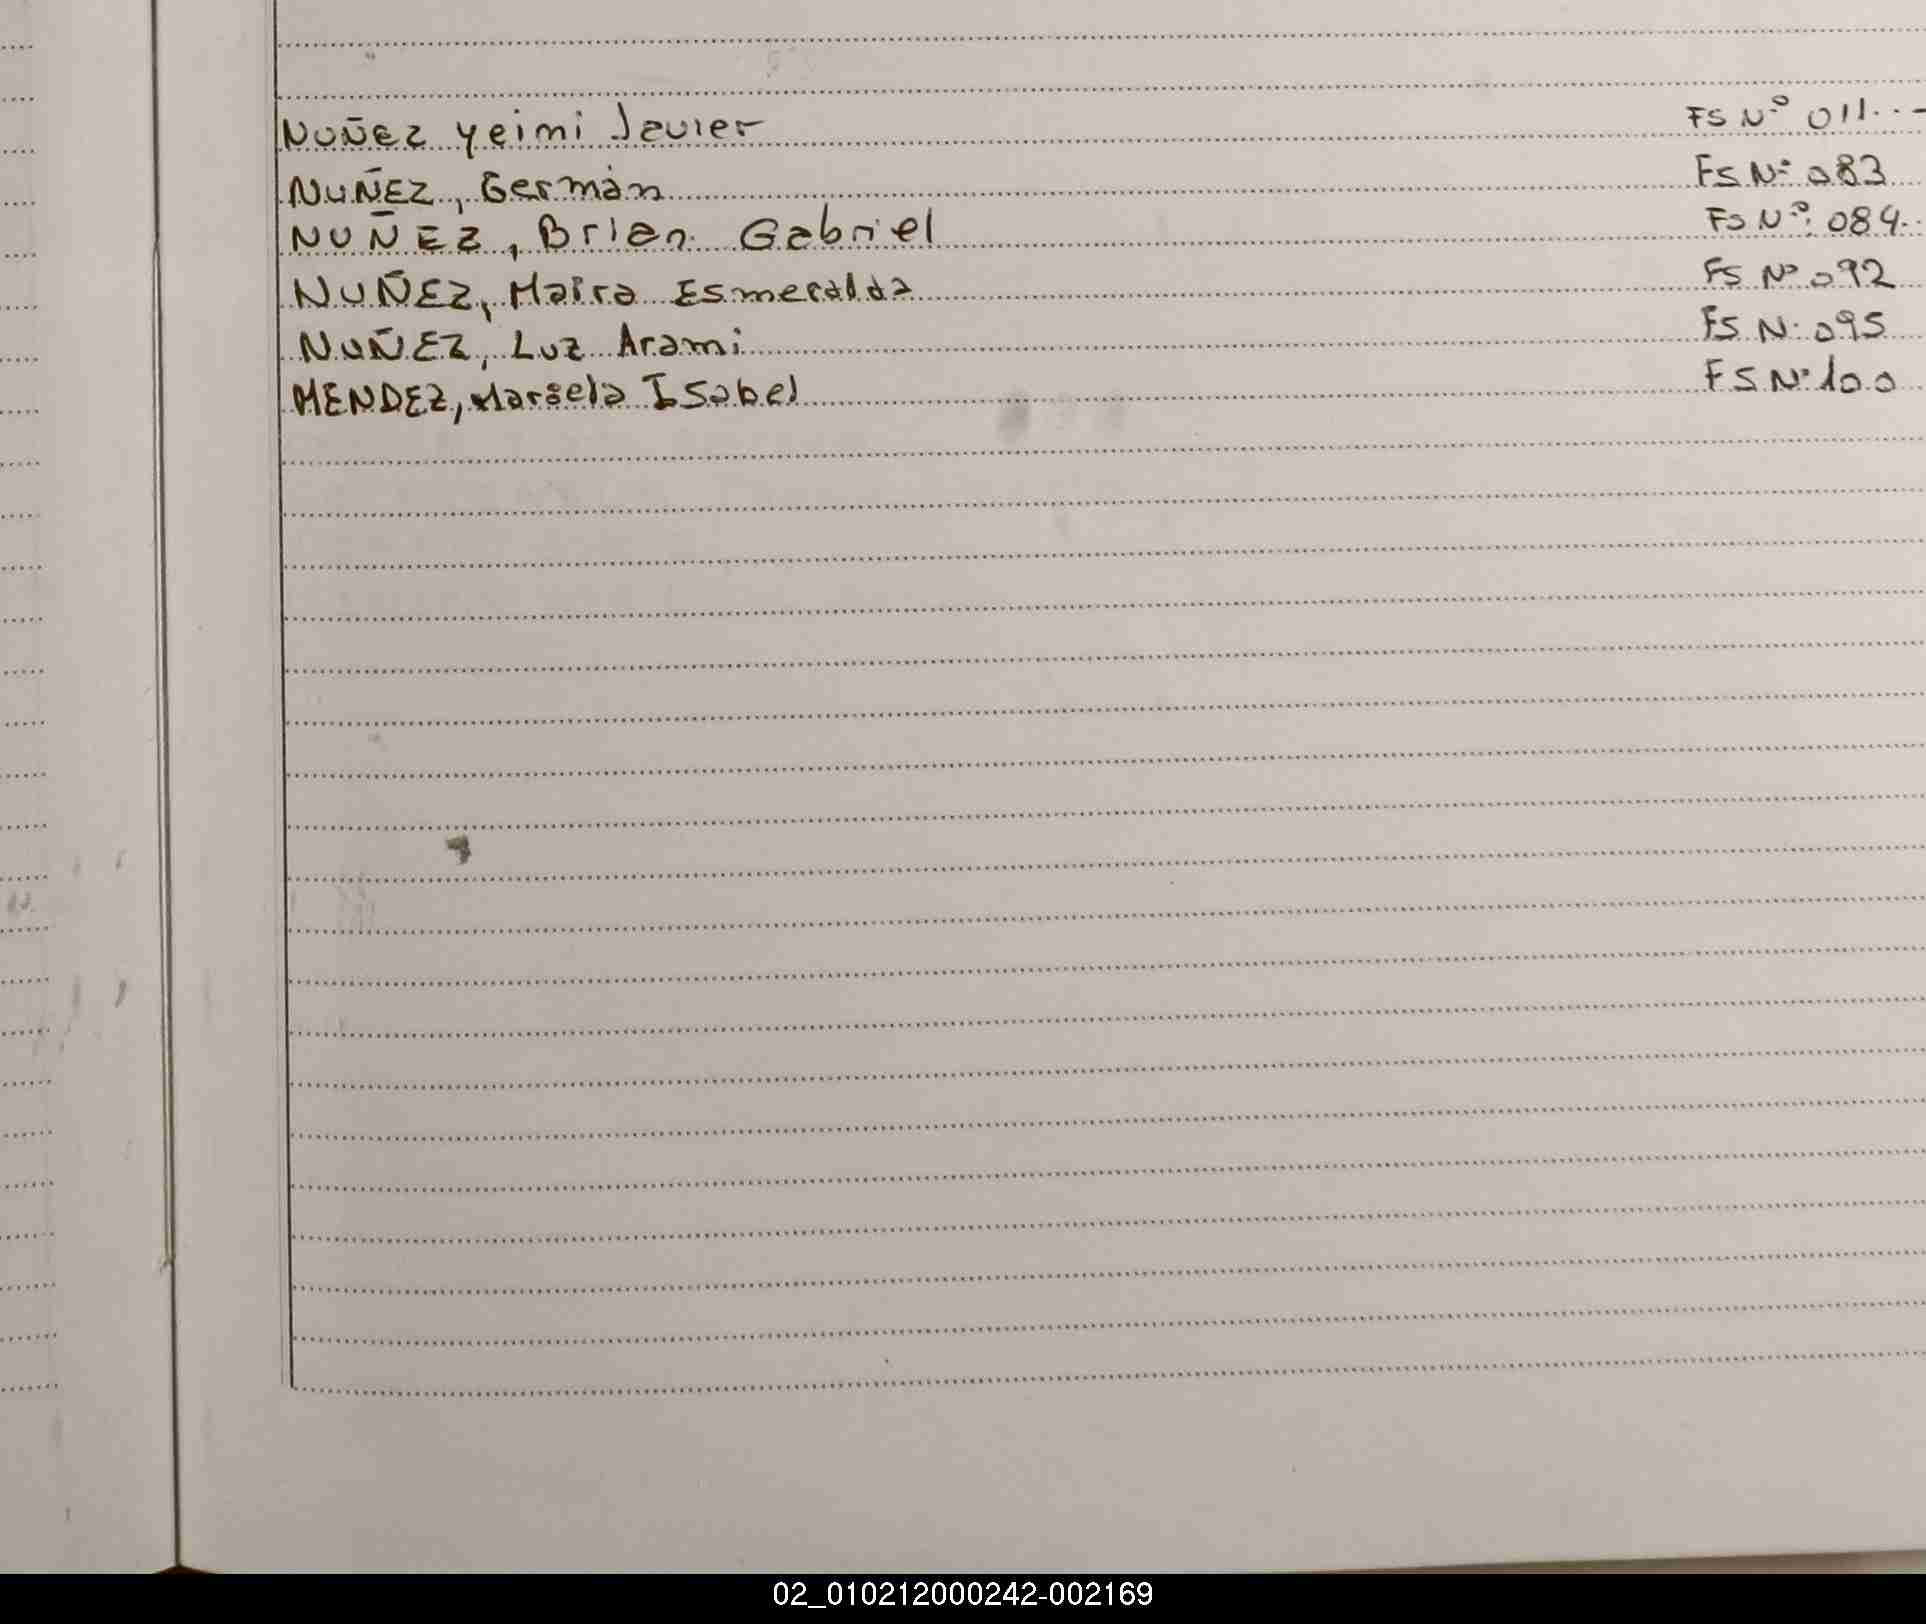 NUÑEZ yeimi Javier FS Nº 011
NUÑEZ, Germán FS Nº 083
NUÑEZ, Brian Gabriel FS Nº: 084
NUÑEZ, Maira Esmeralda FS Nº 092
NUÑEZ, Luz Arami FS N: 095
MENDEZ, Marsela Isabel FS Nº 100
02_010212000242-002169